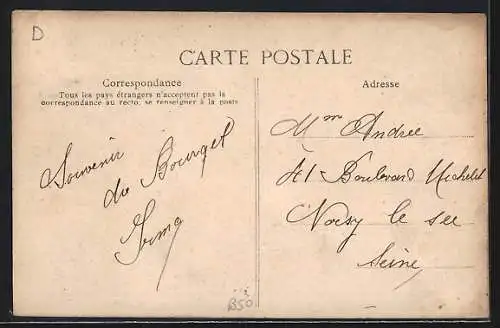 D
CARTE POSTALE
Correspondance
Tous les pays étrangers n'acceptent pas la
correspondance au recto, se renseigner à la poste
Souvenir
du Bourget
Adresse
Mme Andree
41 Boulevard Michelet
Noisy le sec
Seine
B50